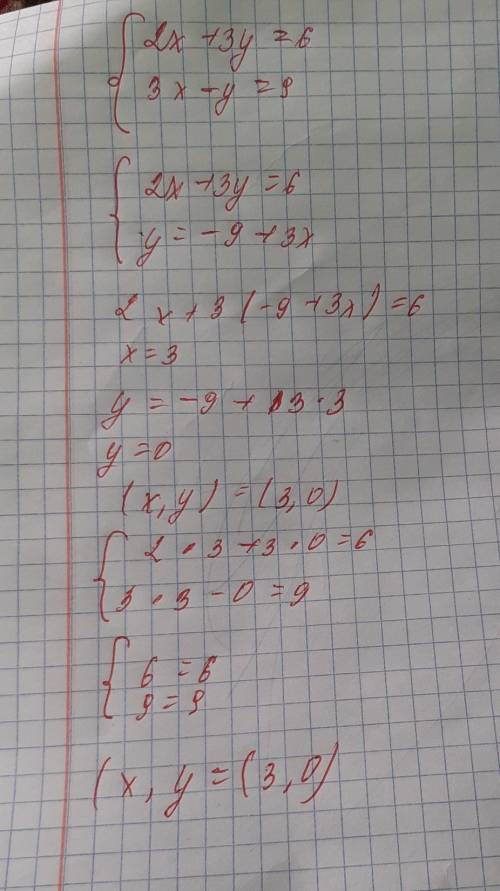 2x+3y=6
3x-y=9
2x+3y=6
y=-9+3x
2x+3(-9+3x)=6
x=3
y=-9+3·3
y=0
(x,y)=(3,0)
2·3+3·0=6
3·3-0=9
6=6
9=9
(x,y=(3,0)